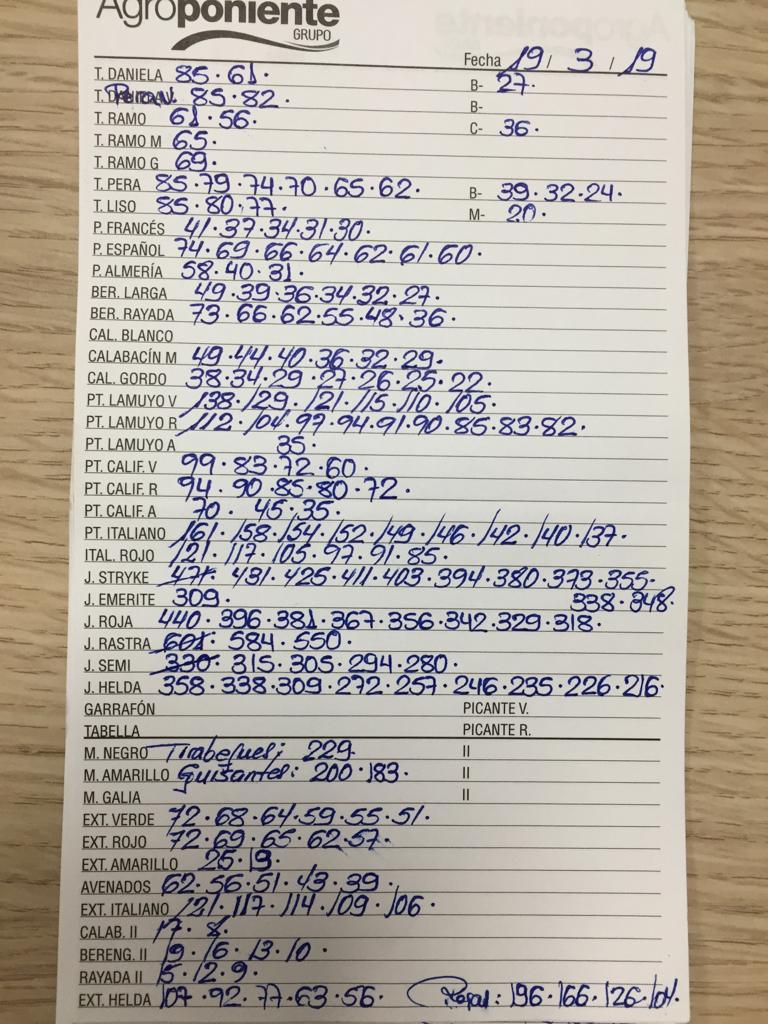 Agroponiente
GRUPO
Fecha 19 / 3 / 19
T. DANIELA 85·61· B- 27·
85·82· B-
T. RAMO 61·56· C- 36·
T. RAMO M 65·
T. RAMO G 69·
T. PERA 85·79·74·70·65·62· B- 39·32·24·
T. LISO 85·80·77· M- 20·
P. FRANCÉS 41·37·34·31·30·
P. ESPAÑOL 74·69·66·64·62·61·60·
P. ALMERÍA 58·40·31·
BER. LARGA 49·39·36·34·32·27·
BER. RAYADA 73·66·62·55·48·36·
CAL. BLANCO
CALABACÍN M 49·44·40·36·32·29·
CAL. GORDO 38·34·29·27·26·25·22·
PT. LAMUYO V 138·129·121·115·110·105·
PT. LAMUYO R 112·104·97·94·91·90·85·83·82·
PT. LAMUYO A 35·
PT. CALIF. V 99·83·72·60·
PT. CALIF. R 94·90·85·80·72·
PT. CALIF. A 70·45·35·
PT. ITALIANO 161·158·154·152·149·146·142·140·137·
ITAL. ROJO 121·117·105·97·91·85·
J. STRYKE 471·431·425·411·403·394·380·373·355·
J. EMERITE 309· 338·348·
J. ROJA 440·396·381·367·356·342·329·318·
J. RASTRA 601·584·550·
J. SEMI 330·315·305·294·280·
J. HELDA 358·338·309·272·257·246·235·226·216·
GARRAFÓN PICANTE V.
TABELLA PICANTE R.
M. NEGRO Tirabeques: 229· II
M. AMARILLO Guisantes: 200·183· II
M. GALIA II
EXT. VERDE 72·68·64·59·55·51·
EXT. ROJO 72·69·65·62·57·
EXT. AMARILLO 25·19·
AVENADOS 62·56·51·43·39·
EXT. ITALIANO 121·117·114·109·106·
CALAB. II 17·8·
BERENG. II 19·16·13·10·
RAYADA II 15·12·9·
EXT. HELDA 107·92·77·63·56· 196·166·126·104·